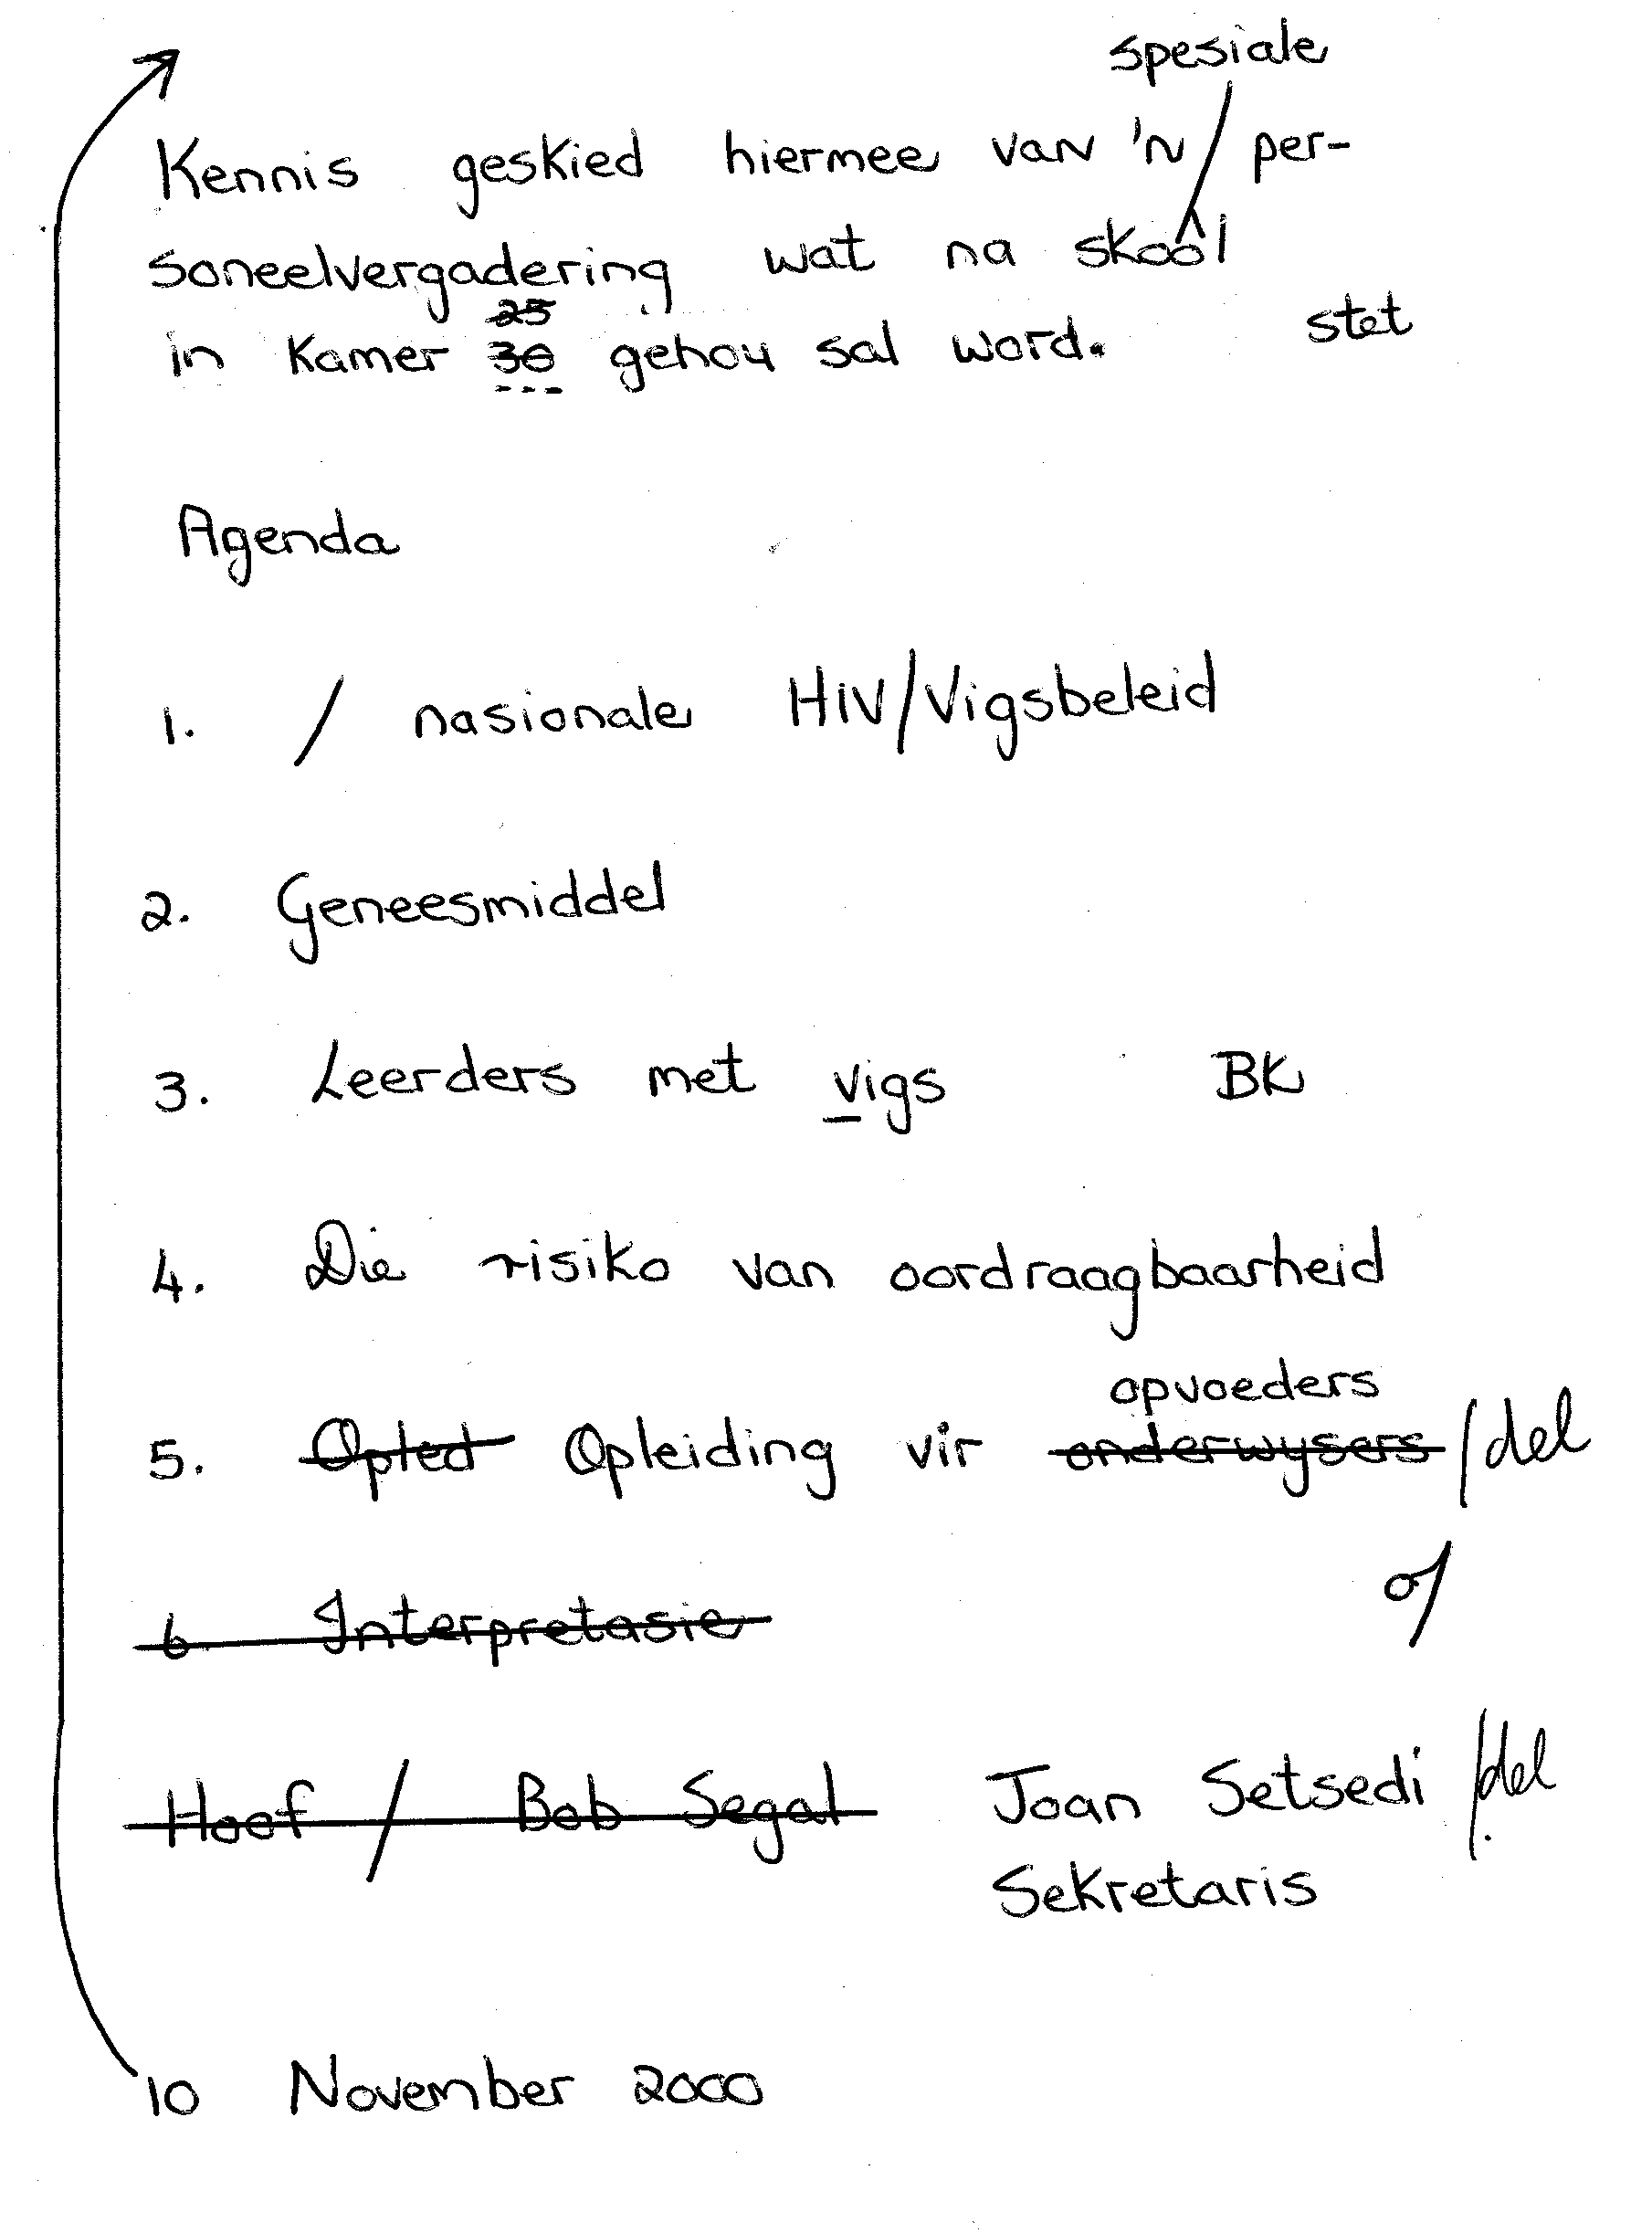 spesiale
Kennis geskied hiermee van 'n / per-
soneelvergadering wat na skool
25
in Kamer 30 gehou sal word. stet
Agenda
1. / nasionale HIV/Vigsbeleid
2. Geneesmiddel
3. Leerders met vigs BK
4. Die risiko van oordraagbaarheid
opvoeders
5. Opled Opleiding vir onderwysers /del
6. Interpretasie
Hoof / Bob Segal Joan Setsedi /del
Sekretaris
10 November 2000